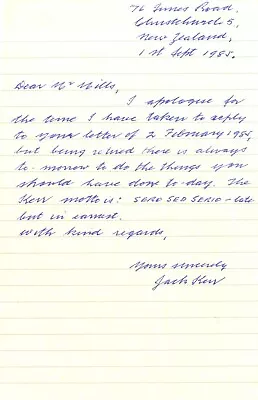 76 Innes Road,
Christchurch 5,
New Zealand,
1st Sept 1985.
Dear Mr Mills,
I apologise for
the time I have taken to reply
to your letter of 2 February 1985,
but being retired there is always
to-morrow to do the things you
should have done to-day. The
Kerr motto is: SERO SED SERIO - late
but in earnest.
With kind regards,
Yours sincerely
Jack Kerr